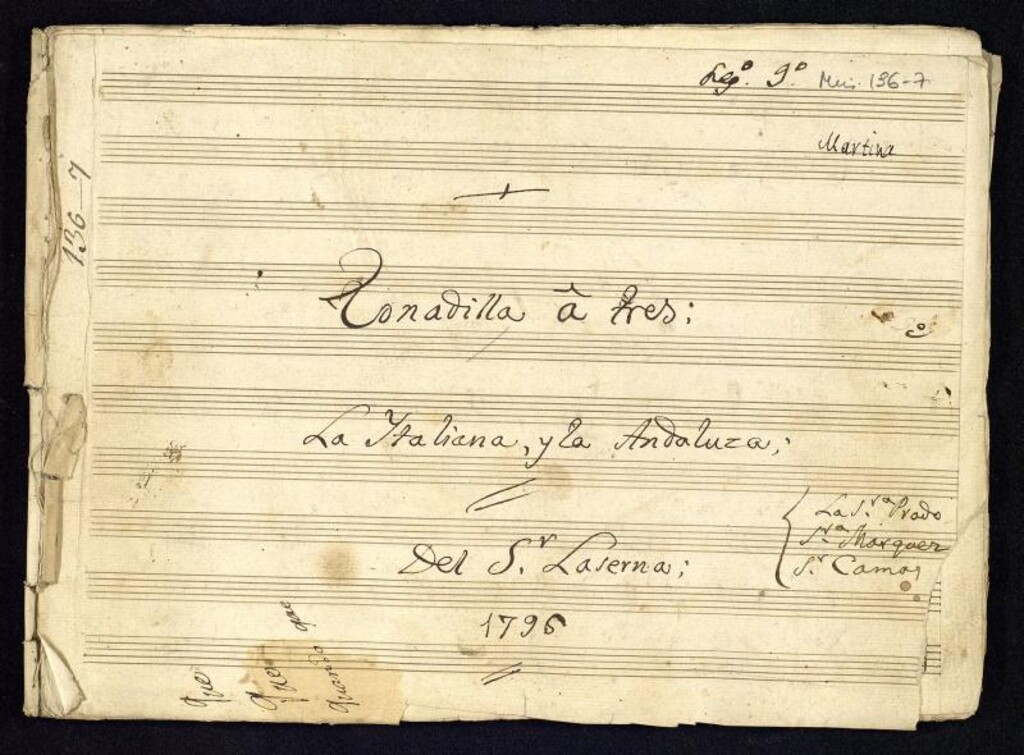 Leg.º 9.º Mus. 136-7
Martina
136-7
Tonadilla â tres;
La Ytaliana, y la Andaluza;
Del S.r Laserna;
1796
La S.ra Prado
S.ra Marquez
S.r Camas
que
que
quando